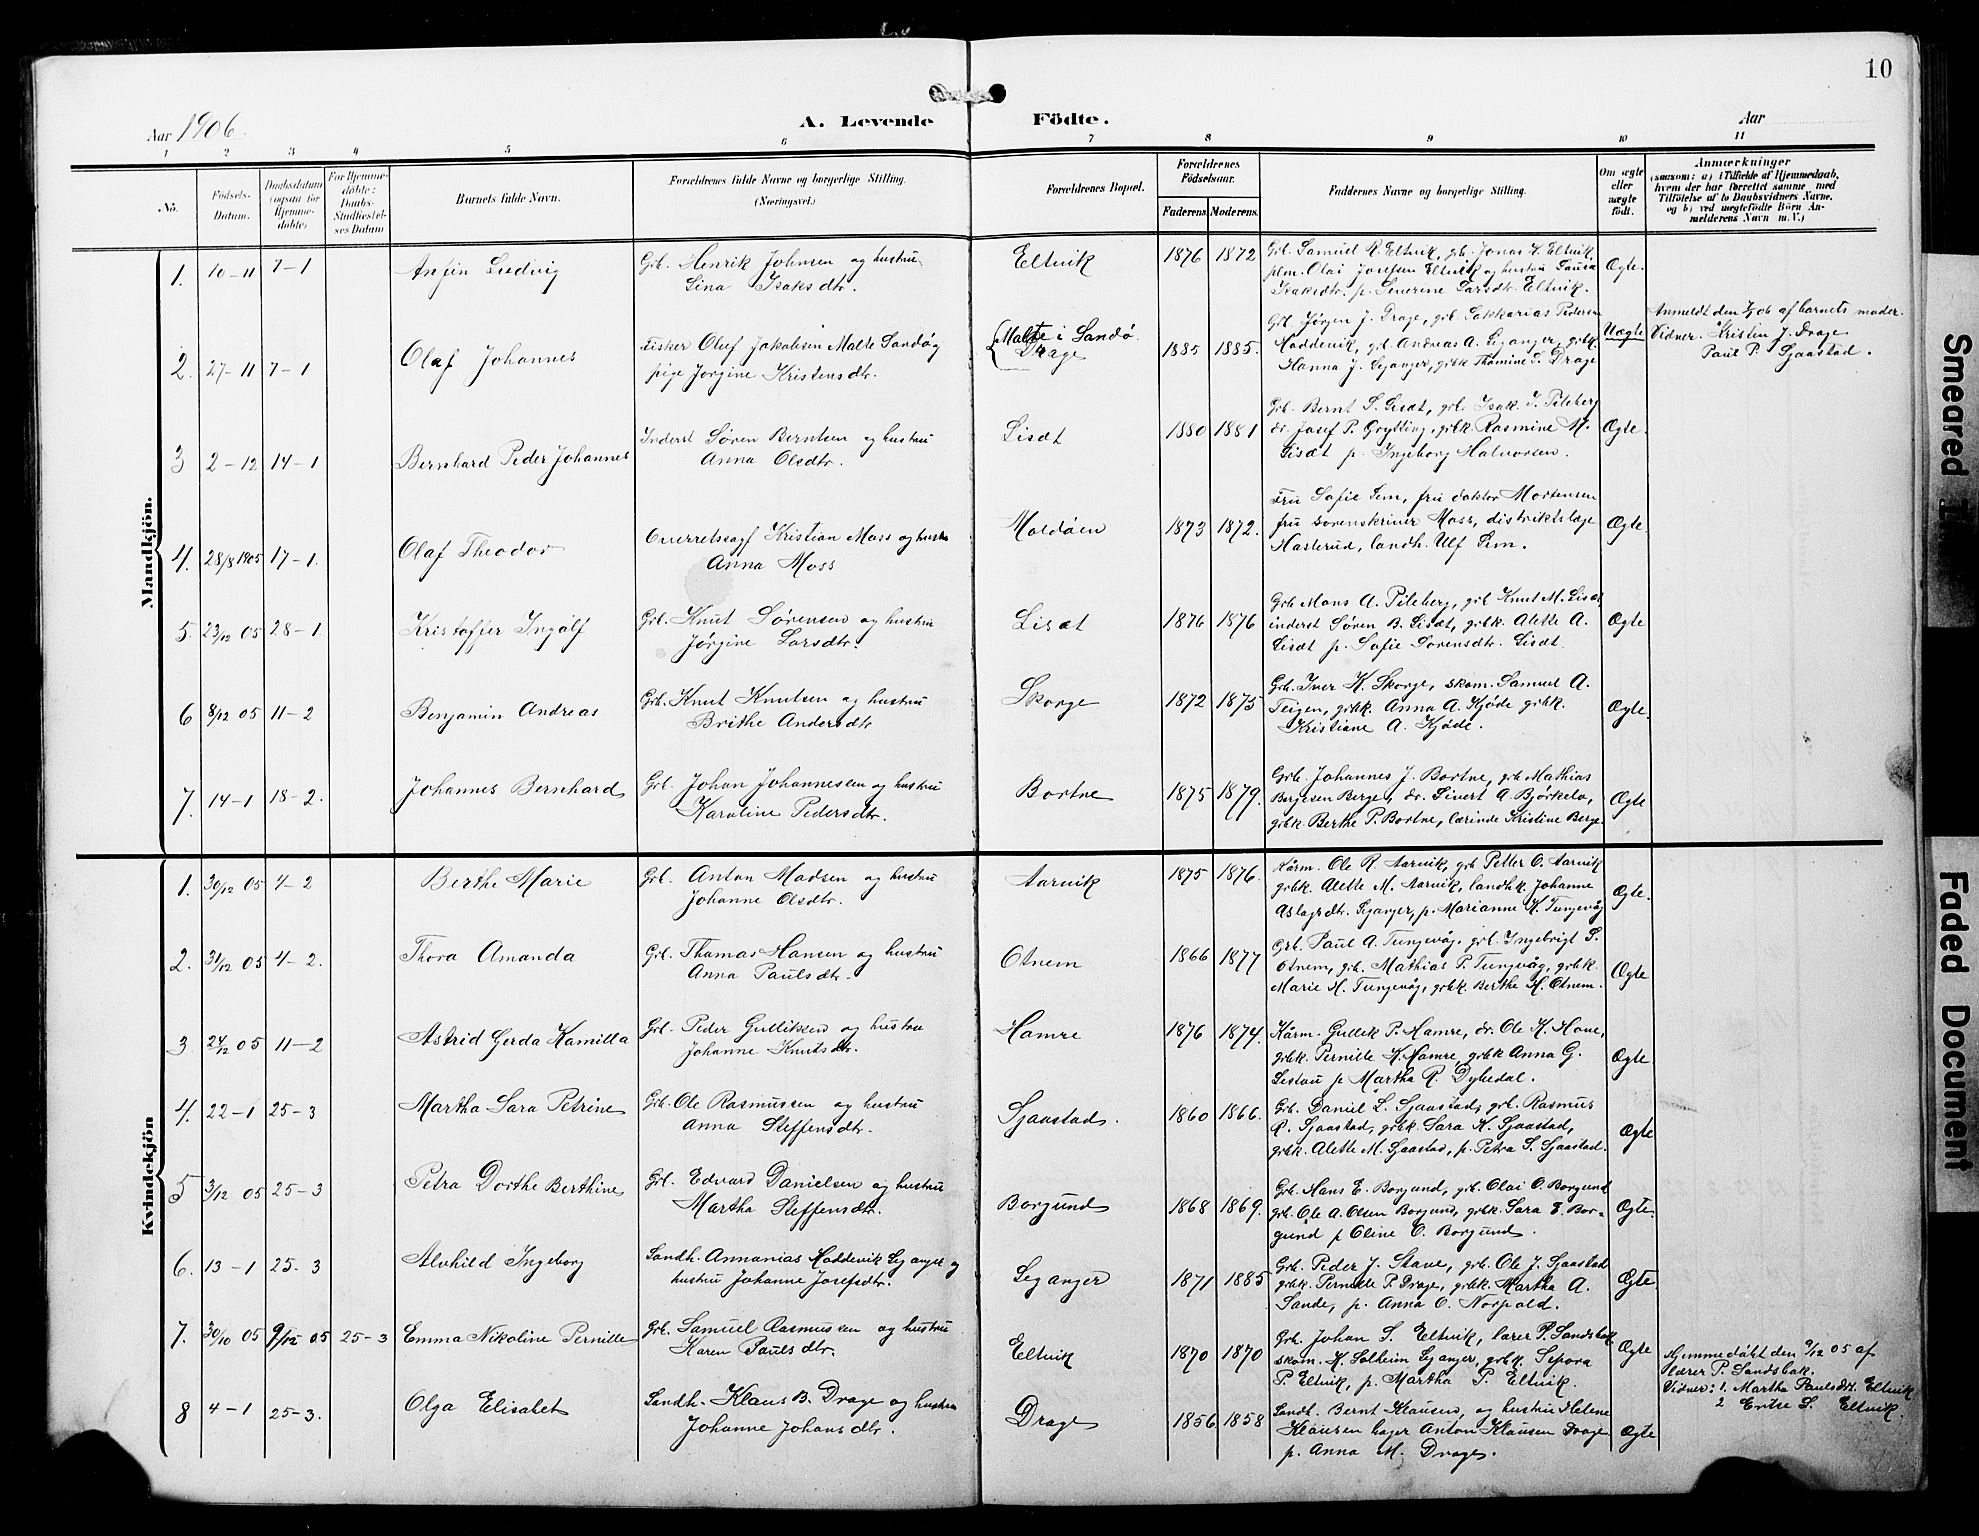 10
Aar 1906.
A. Levende Födte.
Aar
1 2 3 4 5 6 7 8 9 10 11
No.
Födsels-Datum.
Daabsdatum (ogsaa for Hjemme-döbte)
For Hjemme-döbte: Daabs-Stadfæstel-ses Datum
Barnets fulde Navn.
Forældrenes fulde Navne og borgerlige Stilling.
(Næringsvei.)
Forældrenes Bopæl.
Forældrenes Födselsaar.
Faderens. Moderens.
Faddernes Navne og borgerlige Stilling.
Om ægte eller uægte födt.
Anmærkninger
(saasom: a) i Tilfælde af Hjemmedaab,
hvem der har forrettet samme med
Tilföielse af to Daabsvidners Navne,
og b) ved uægtefödte Börn An-
melderens Navn m. V.)
Mandkjön.
1. 10-11 7-1 Anfin Ludvig
Grb. Henrik Johnsen og hustru
Lina Isaksdtr.
Eltvik 1876 1872
Grb. Samuel R. Eltvik, grb. Jonas K. Eltvik,
plm. Olai Josefsen Eltvik og hustru Lausa
Isaksdtr. p. Severine Larsdtr. Eltvik.
Ægte.
2. 27-11 7-1 Olaf Johannes
Fisker Oluf Jakobsen Malte Sandö og
pige Jørgine Kristensdtr.
Malte i Sandö.
Drage 1885 1885.
Grb. Jørgen J. Drage, grb. Sakkarias Pedersen
Hoddevik, grb. Andreas A. Leganger, grbk.
Hanna J. Leganger, grbk. Thomine S. Drage
Uægte
Anmeldt den 7/1 06 af barnets moder.
Vidner: Kristin J. Drage
Paul P. Sjaastad.
3 2-12 14-1 Bernhard Peder Johannes
Inderst Søren Berntsen og hustru
Anna Olsdtr.
Lisæt 1880 1881
Grb. Bernt S. Lisæt, grb. Isak I. Pileberg
dr. Josef P. Grytting, grbk. Rasmine M.
Lisæt p. Ingeborg Halvorsen.
Ægte.
4. 28/8 1905 17-1. Olaf Theodor
Overretssagf. Kristian Moss og hustru
Anna Moss
Moldöen 1873 1872.
Fru Sofie Sem, fru doktor Mortensen
fru sorenskriver Moss, distriktslæge
Hasterud, landh. Ulf Sem.
Ægte.
5. 23/12 05 28-1. Kristoffer Ingolf
Grb. Knut Sørensen og hustru
Jørgine Larsdtr.
Lisæt 1876 1876
Grb Mons A. Pileberg, grb Knut M. Lisæt,
inderst Søren B. Lisæt, grbk. Alette A.
Lisæt p. Sofie Sorensdtr. Lisæt.
Ægte
6 8/12 05 11-2 Benjamin Andreas
Grb. Knut Knutsen og hustru
Brithe Andersdtr
Skorge 1872 1875
Grb. Iver K. Skorge, skom. Samuel A.
Teigen, grbk. Anna A. Kjøde grbk.
Kristiane A. Kjøde.
Ægte.
7. 14-1 18-2. Johannes Bernhard
Grb. Johan Johannesen og hustru
Karoline Pedersdtr.
Bortne 1875 1879.
Grb. Johannes J. Bortne, grb Mathias
Børgesen Berge, dr. Sivert A. Bjørkelo,
grbk. Berthe P. Bortne, lærerinde Kristine Berge.
Ægte
Kvindekjön
1. 30/12 05 4-2 Berthe Marie
Grb. Anton Madsen og hustru
Johanne Olsdtr.
Aarvik 1875 1876.
Kårm. Ole R. Aarvik, grb Petter O. Aarvik
grbk. Alette M. Aarvik, landhk. Johanne
Aslagsdtr. Leganger, p. Marianne K. Tungevåg
Ægte.
2. 31/12 05 4-2. Thora Amanda
Grb. Thomas Hansen og hustru
Anna Paulsdtr.
Otnem 1866 1877
Grb. Paul A. Tungevåg, grb. Ingebrigt S.
Otnem, grb. Mathias P. Tungevåg, grbk.
Marie H. Tungevåg, grbk. Berthe H. Otnem.
Ægte
3. 24/12 05 11-2 Astrid Gerda Kamilla
Grb. Peder Gulliksen og hustru
Johanne Knutsdtr.
Hamre 1876 1874.
Kårm. Gullek P. Hamre, dr. Ole K. Hove,
grbk. Pernille K. Hamre, grbk Anna G.
p Martha R. Dybedal.
Ægte
4. 22-1 25-3 Martha Sara Petrine
Grb. Ole Rasmussen og hustru
Anna Steffensdtr.
Sjaastad. 1860 1866.
Grb. Daniel L. Sjaastad, grb. Rasmus
R. Sjaastad, grbk Sara K. Sjaastad,
grbk. Alette M. Sjaastad, p. Petra S. Sjaastad.
Ægte
5 3/12 05 25-3 Petra Dorthe Berthine
Grb. Edvard Danielsen og hustru
Martha Steffensdtr.
Borgund 1868 1869.
Grb. Hans E. Borgund, grb. Olai O. Borgund
grb. Ole A. Olsen Borgund, grbk. Sara E. Bor-
gund p Oline O. Borgund.
Ægte.
6. 13-1 25-3 Alvhild Ingeborg
Landh. Annanias Hoddevik Leganger og
hustru Johanne Josefsdtr.
Leganger 1871 1885
Grb. Peder J. Stave, grb. Ole J. Sjaastad
grbk. Pernille P. Drage, grbk. Martha A.
Sande, p. Anna O. Norpold.
Ægte.
7. 30/10 05 9/12 05 25-3 Emma Nikoline Pernille
Grb. Samuel Rasmussen og hustru
Karen Paulsdtr.
Eltvik 1870 1870
Grb. Johan S. Eltvik, lærer P. Sandsbak
skom. K. Solheim Leganger, grbk. Sepora
P. Eltvik, p. Martha P. Eltvik.
Ægte
Hjemmedöbt den 9/12 05 af
lærer P. Sandsbak.
Vidner: 1. Martha Paulsdtr. Eltvik
2 S. Eltvik.
8 4-1 25-3. Olga Elisabet
Landh. Klaus B. Drage og hustru
Johanne Johansdtr.
Drage 1856 1858
Landh. Bernt Klausen, og hustru Helene
Klausen Anton Klausen Drage
p. Anna M. Drage.
Ægte
Smeared
Faded Document